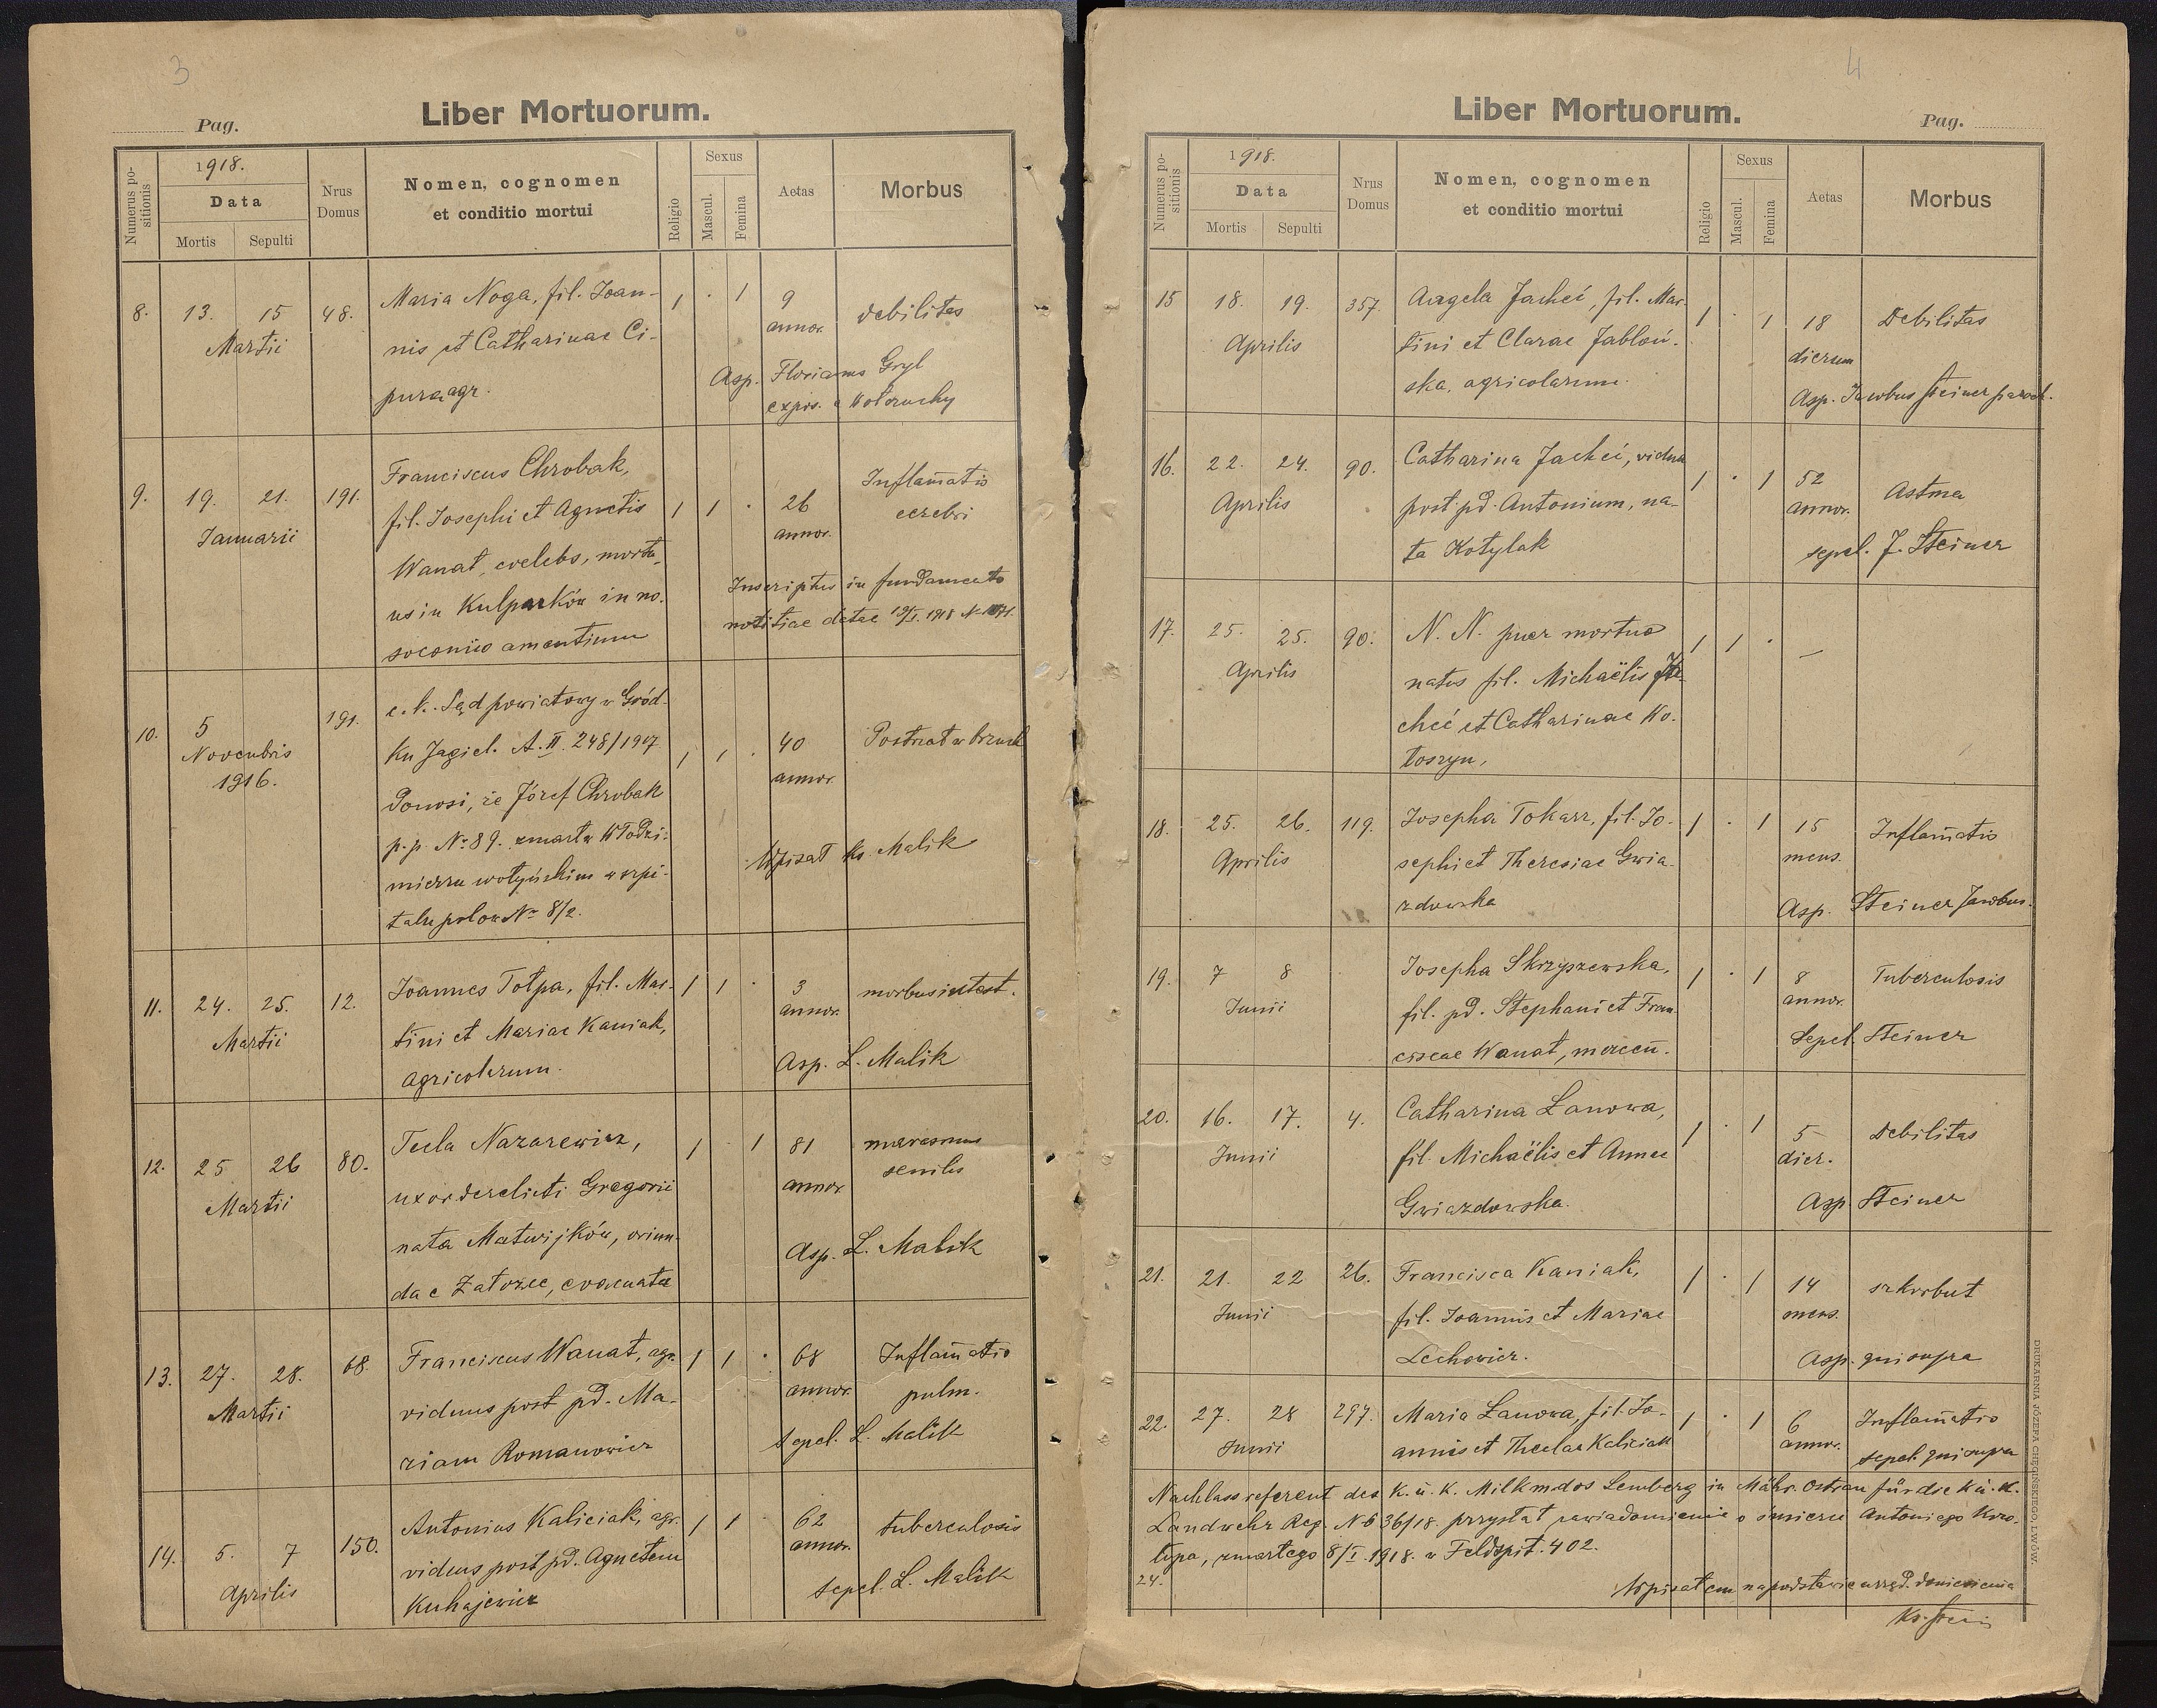 3
Pag.
Liber Mortuorum.
Numerus positionis
1918.
Data
Mortis
Sepulti
Nrus Domus
Nomen, cognomen
et conditio mortui
Religio
Sexus
Mascul.
Femina
Aetas
Morbus
8. 13. 15 48. Maria Noga, fil. Joan- 1 . 1 9 debilitas
Martii nis et Catharinae Ci- annor.
pura, agr. Asp. Florianus Gryl
expos. a Wołczuchy
9. 19. 21. 191. Franciscus Chrobak, Inflam̄atio
fil. Josephi et Agnetis 1 1 . 26 cerebri
Januarii Wanat, coelebs, mortu- annor.
us in Kulparków in no- Inscriptus in fundamento
socomio amentium notitiae datae 19/I. 1918 N.
10. 5 191. c. k. Sąd powiatowy w Gród-
Novembris ku Jagiel. A. II. 248/1917 1 1 . 40 Postrzał w brzuch
1916. donosi, że Józef Chrobak annor.
p.p. No 89. zmarł w Włodzi-
mierzu wołyńskim w szpi- Wpisał Ks. Malik
talu polow. Nr 8/2.
11. 24. 25. 12. Joannes Tołpa, fil. Mar- 1 1 . 3 morbus intest.
Martii tini et Mariae Kaniak, annor.
agricolarum. Asp. L. Malik
12. 25 26 80. Tecla Nazarewicz, 1 . 1 81 marasmus
Martii uxor derelicti Gregorii annor. senilis
nata Matwijków, oriun-
da e Załoźce, evacuata Asp. L. Malik
13. 27. 28. 68. Franciscus Wanat, agr. 1 1 . 68 Inflam̄atio
Martii viduus post pd. Ma- annor. pulm.
riam Romanowicz sepel. L. Malik
14. 5. 7 150. Antonius Kaliciak, agr. 1 1 62 tuberculosis
Aprilis viduus post pd. Agnetem annor.
Kuhajewicz sepel. L. Malik
4
Liber Mortuorum.
Pag.
Numerus positionis
1918.
Data
Mortis
Sepulti
Nrus Domus
Nomen, cognomen
et conditio mortui
Religio
Sexus
Mascul.
Femina
Aetas
Morbus
15 18. 19. 357. Angela Jacheć, fil. Mar- 1 . 1 18 Debilitas
Aprilis tini et Clarae Jabłoń- dierum
ska, agricolarum. Asp. Jacobus Steiner paroch.
16. 22. 24. 90. Catharina Jacheć, vidua 1 . 1 52 Astma
Aprilis post pd. Antonium, na- annor.
ta Kotylak sepel. J. Steiner
17. 25. 25. 90. N. N. puer mortuo 1 1 . —
Aprilis natus fil. Michaëlis Ja-
cheć et Catharinae Ko-
łoszyn,
18. 25. 26. 119. Josepha Tokarz, fil. Jo- 1 . 1 15 Inflam̄atio
Aprilis sephi et Theresiae Gwia- mens.
zdowska Asp. Steiner Jacobus.
19. 7 8 Josepha Skrzyszewska, 1 . 1 8 Tuberculosis
Junii fil. pd. Stephani et Fran- annor.
ciscae Wanat, mercen̄. Sepel. Steiner
20. 16. 17. 4. Catharina Łanowa, 1 . 1 5 Debilitas
Junii fil. Michaëlis et Annae dier.
Gwiazdowska. Asp Steiner
21. 21. 22 26. Francisca Kaniak, 1 . 1 14 szkorbut
Junii fil. Joannis et Mariae mens.
Lechowicz. Asp. qui supra
22. 27. 28 297. Maria Łanowa, fil. Jo- 1 . 1 6 Inflam̄atio
Junii annis et Theclae Kaliciak annor. sepel. qui supra
Nachlassreferent des K. u. K. Milkmdos Lemberg in Mähr. Ostrau für die k. u. K.
Landwehr Reg. N 636/18. przysłał zawiadomienie o śmierci Antoniego
zmartego 8/I. 1918. w Feldspit. 402.
24. Wpisałem na podstawie urzęd. doniesienia
Ks.
DRUKARNIA JÓZEFA CHĘCIŃSKIEGO, LWÓW.